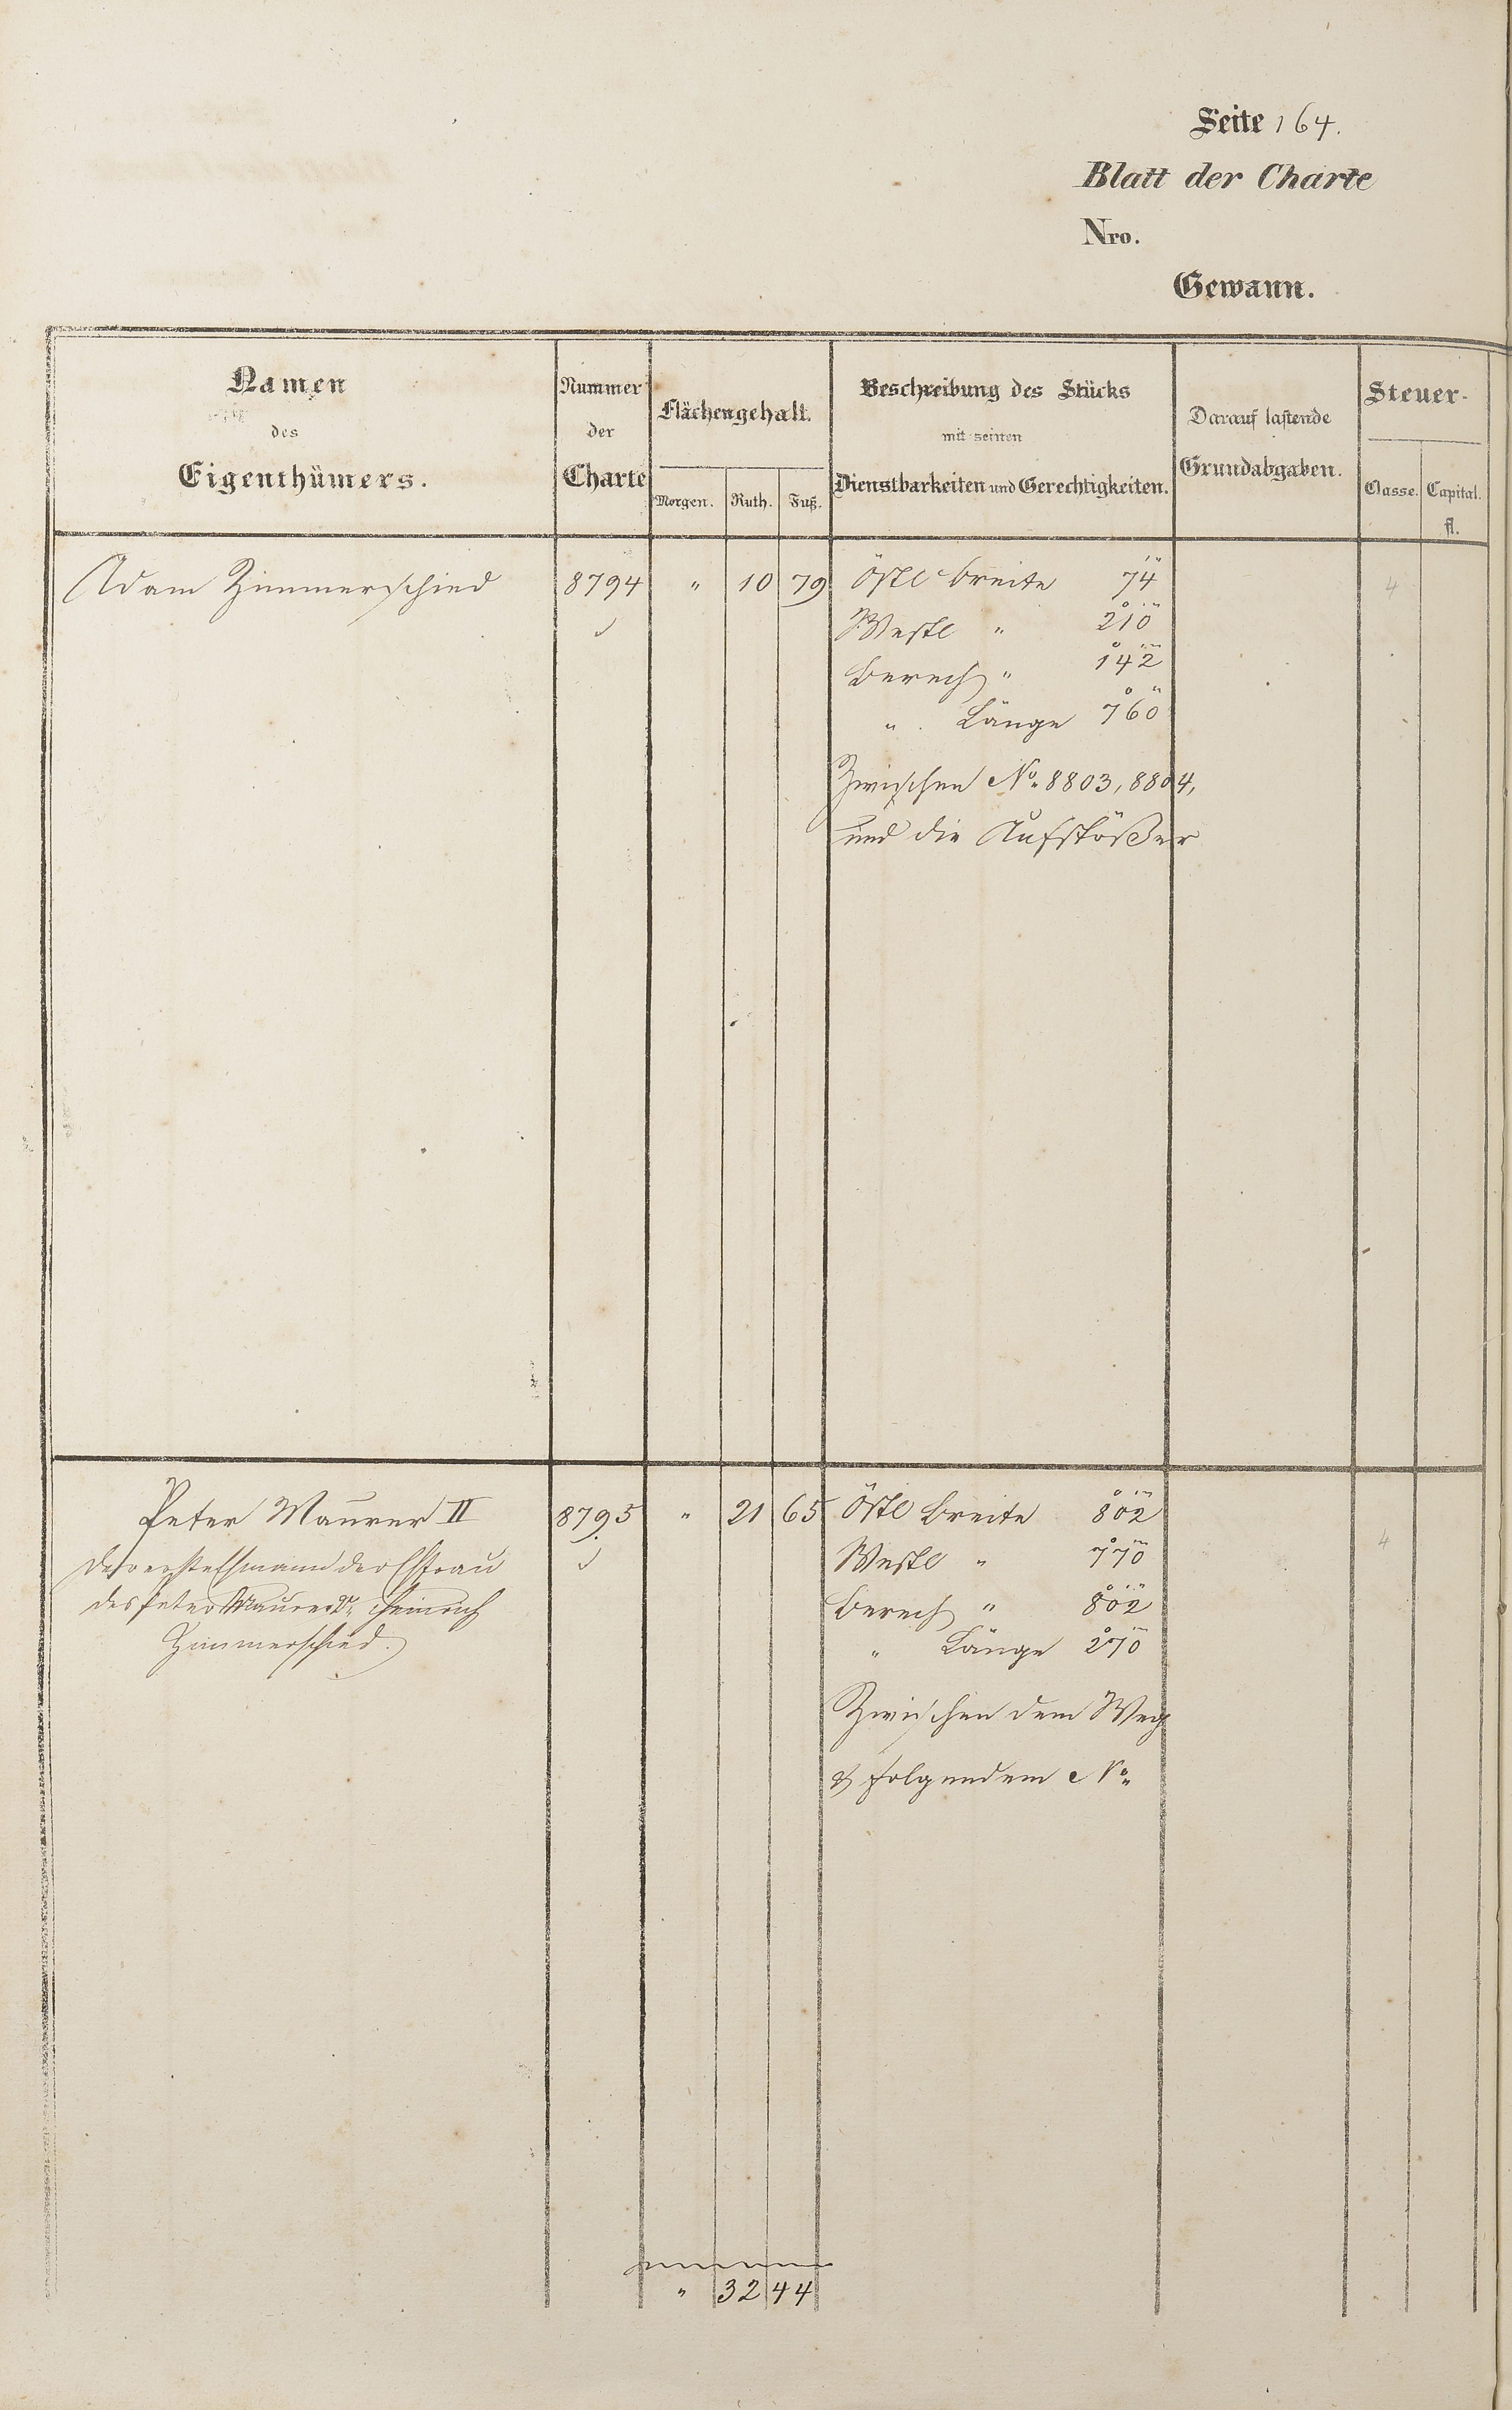 Seite 164.
Blatt der Charte
Nro.
Gewann.
Namen des Eigenthümers.
Nummer der Charte
Flächengehalt.
Morgen. Ruth. Fuß.
Beschreibung des Stücks
mit seinen
Dienstbarkeiten und Gerechtigkeiten.
Darauf lastende
Grundabgaben.
Steuer-
Classe. Capital.
fl.
Adam Zimmerschied 8794 " 10 79 Östl Breite 74 4
Westl " 210
Berech " 142
" Länge 760
Zwischen No. 8803, 8804,
und die Aufstößer
Peter Maurer II 8795 " 21 65 Östl Breite 802 4
Der erste Ehmann der Ehfrau
des Peter Maurer 2r Heinrich
Zimmerschied.
Westl " 770
Berech " 802
" Länge 270
Zwischen dem Weg
& folgendem No.
" 32 44